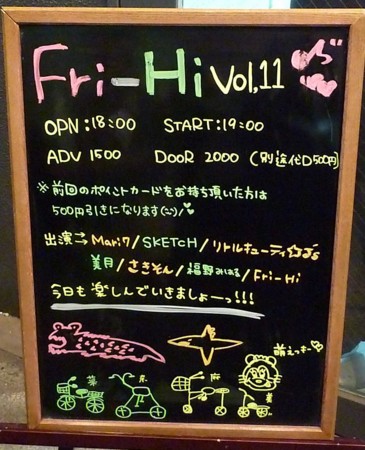 Fri-Hi Vol,11
OPN:18:00 START:19:00
ADV 1500 DOOR 2000 (別途代D500円)
※前回のポイントカードをお持ち頂いた方は
500円引きになります(ニシ)/♥
出演→Mari7/SKETCH/リトルキューティ
美月/さきそん/福野みほる/Fri-Hi
今日も楽しんでいきましょーっ!!!
萌えっキー